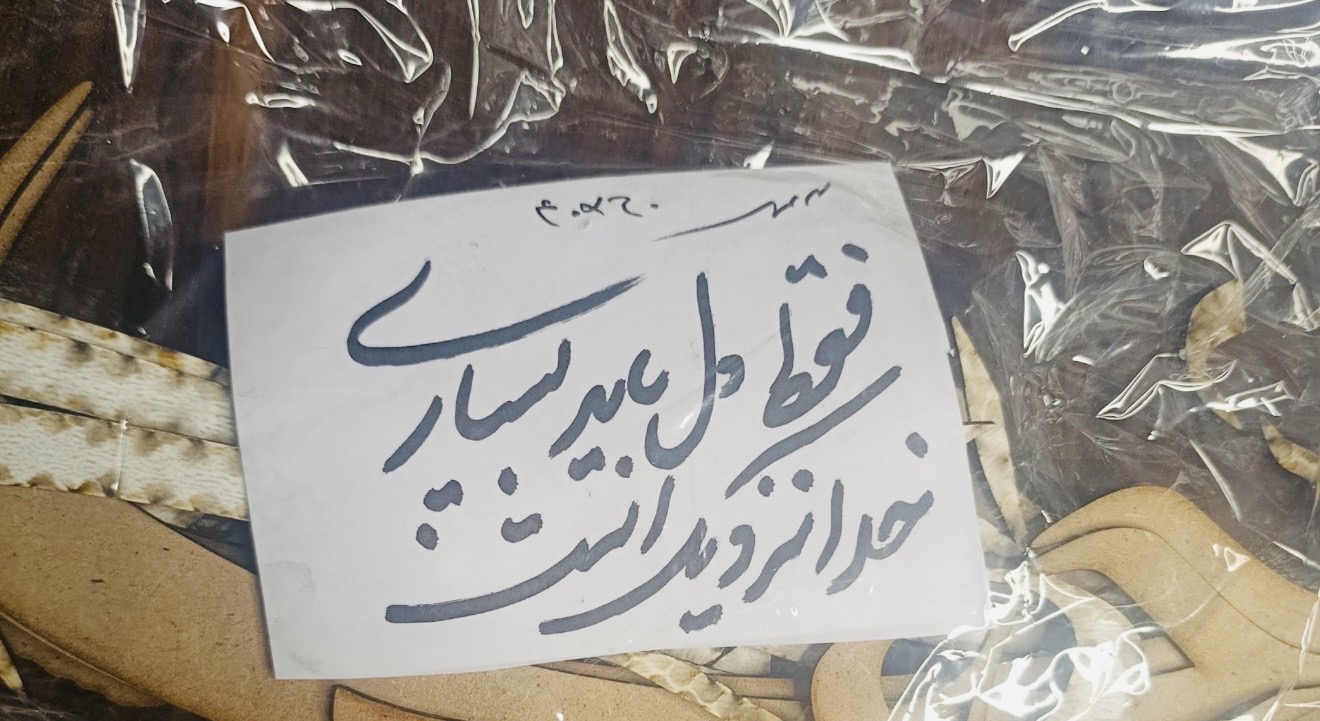 فقط دل باید بسپاری
خدا نزدیک است